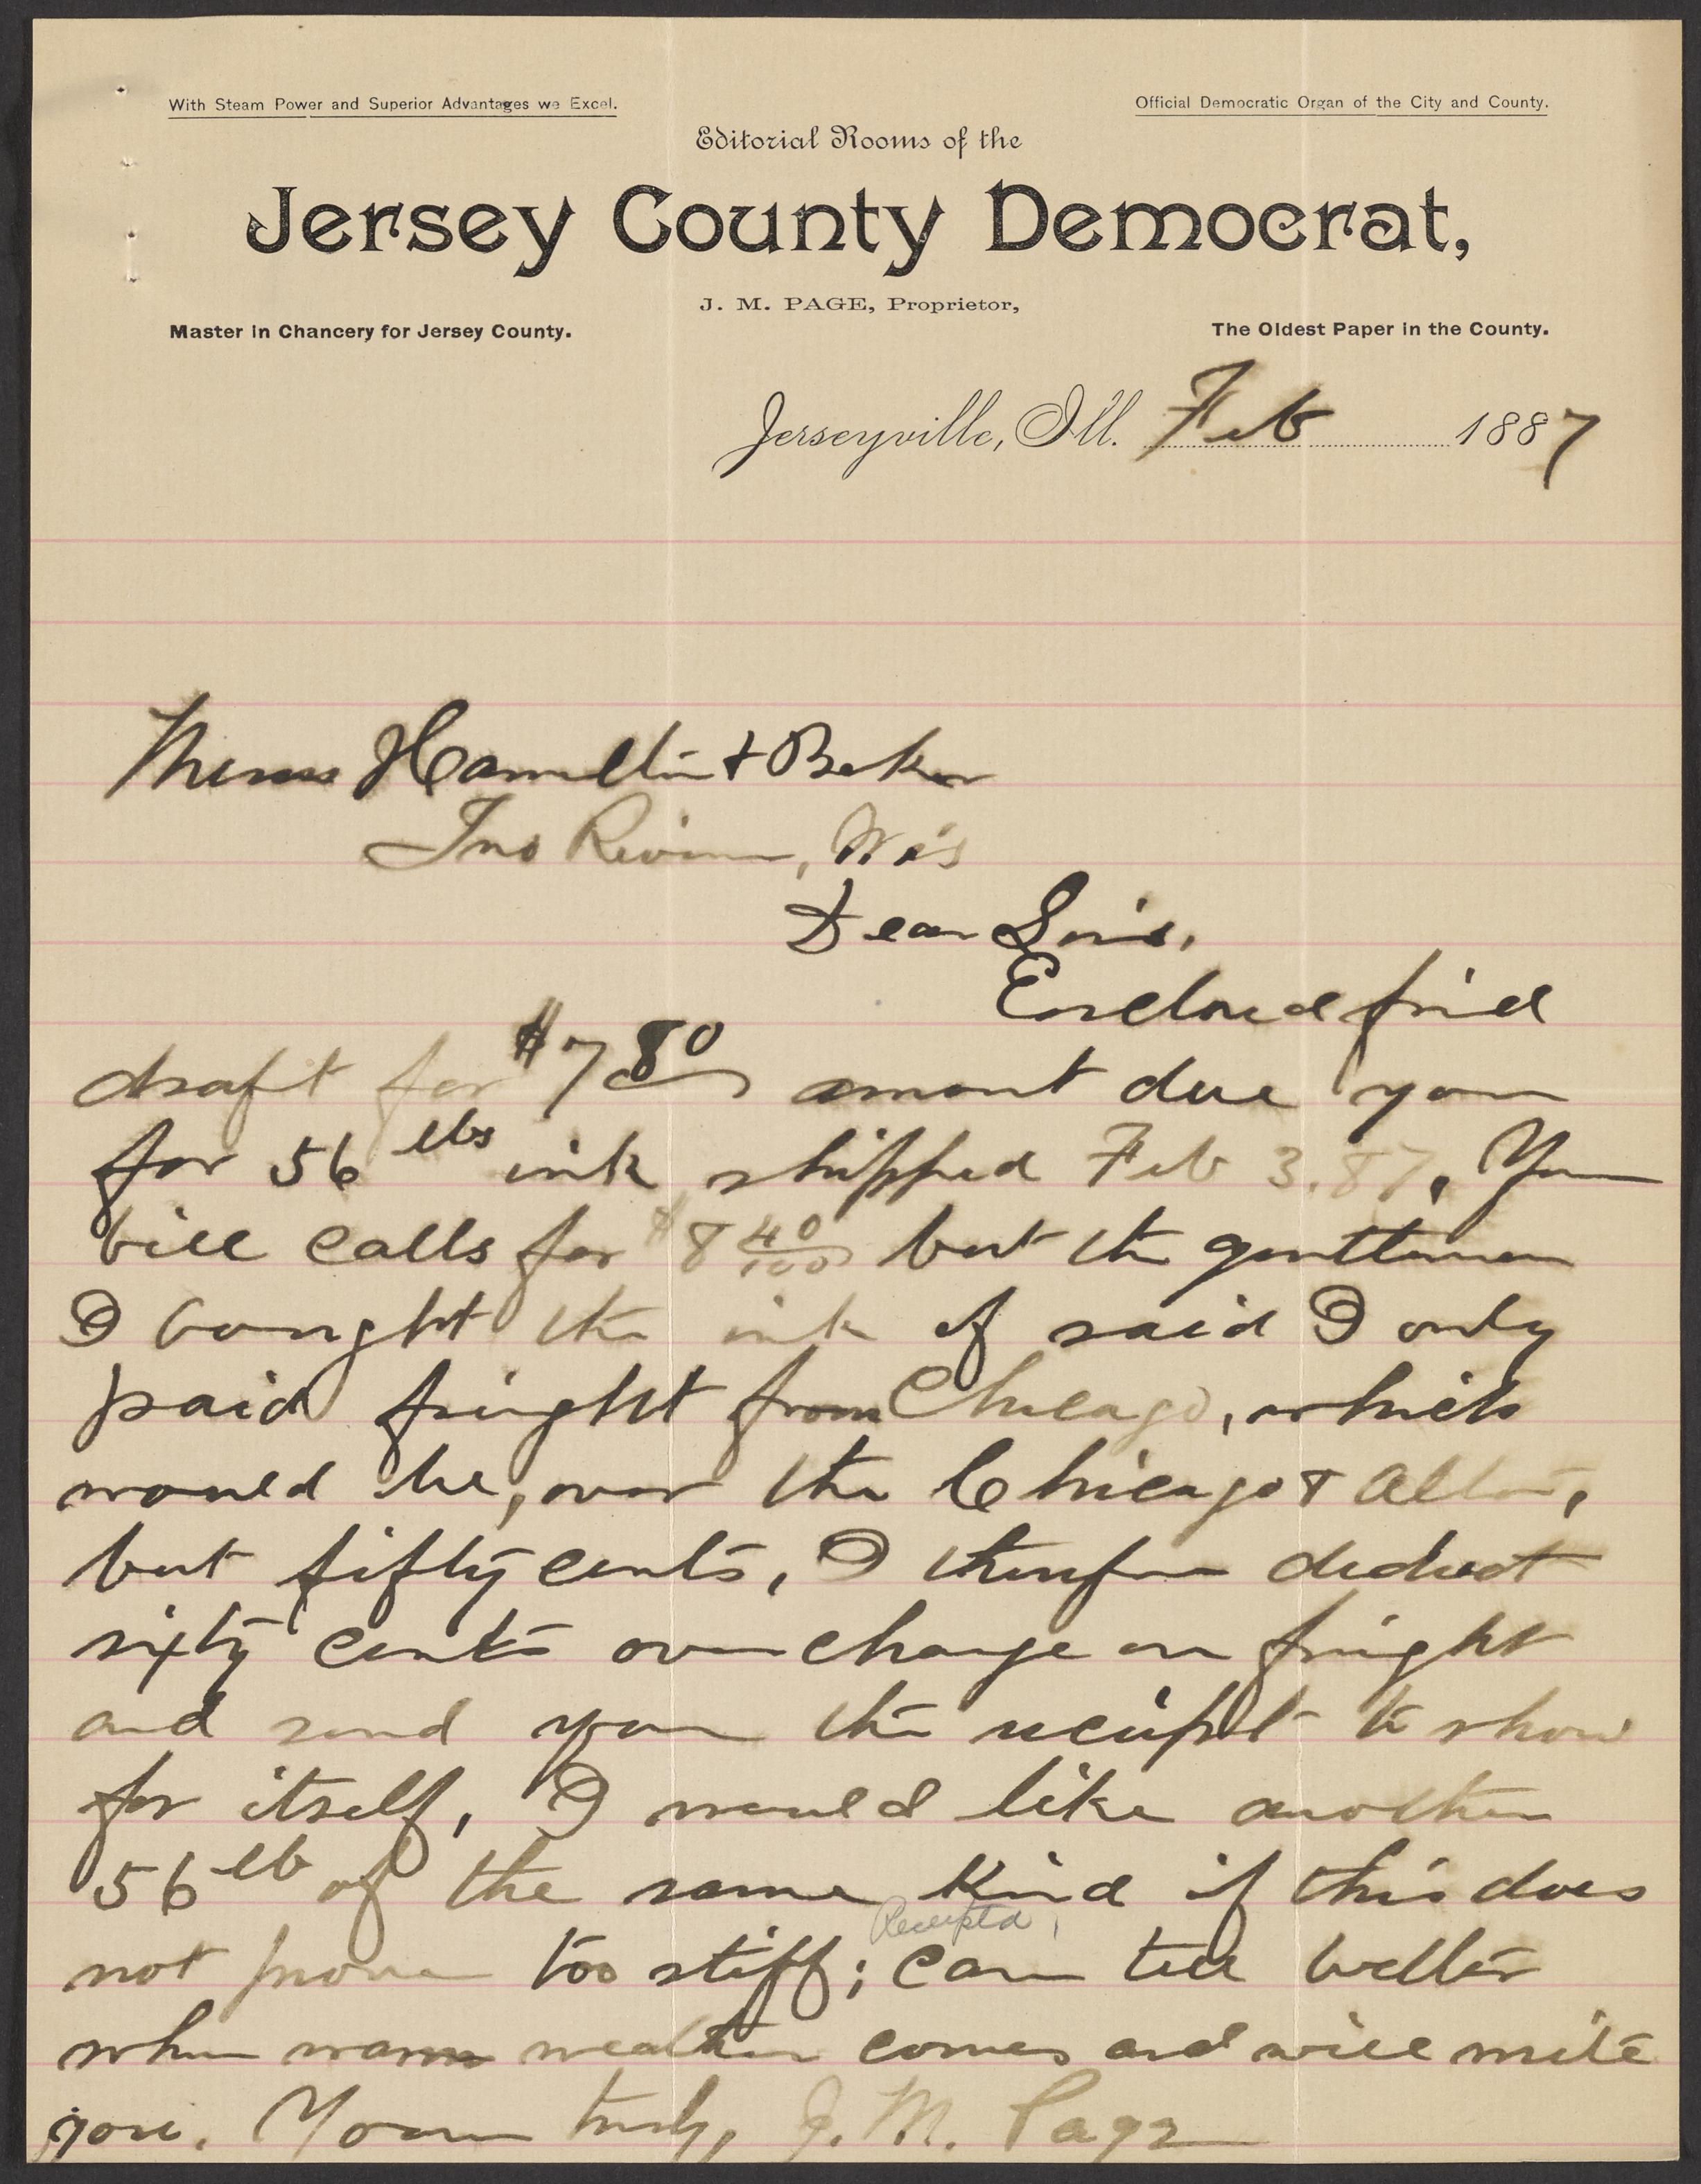 With Steam Power and Superior Advantages we Excel.
Official Democratic Organ of the City and County.
Editorial Rooms of the
Jersey County Democrat,
J. M. PAGE, Proprietor,
Master in Chancery for Jersey County.
The Oldest Paper in the County.
Jerseyville, Ill. Feb 1887
Messrs Hamilton & Baker
Two Rivers, Wis
Dear Sirs,
Enclosed find
draft for $7 80 amount due you
for 56 lbs ink shipped Feb 3, 87. Your
bill calls for $8 40/100 but the gentleman
I bought the ink of said I only
paid freight from Chicago, which
would be, over the Chicago & Alton,
but fifty cents, I therefore deduct
sixty cents over charge on freight
and send you the receipt to show
for itself. I would like another
56 lb of the same kind if this does
Receipted
not prove too stiff; can tell better
when warm weather comes and will write
you. Yours truly, J. M. Page